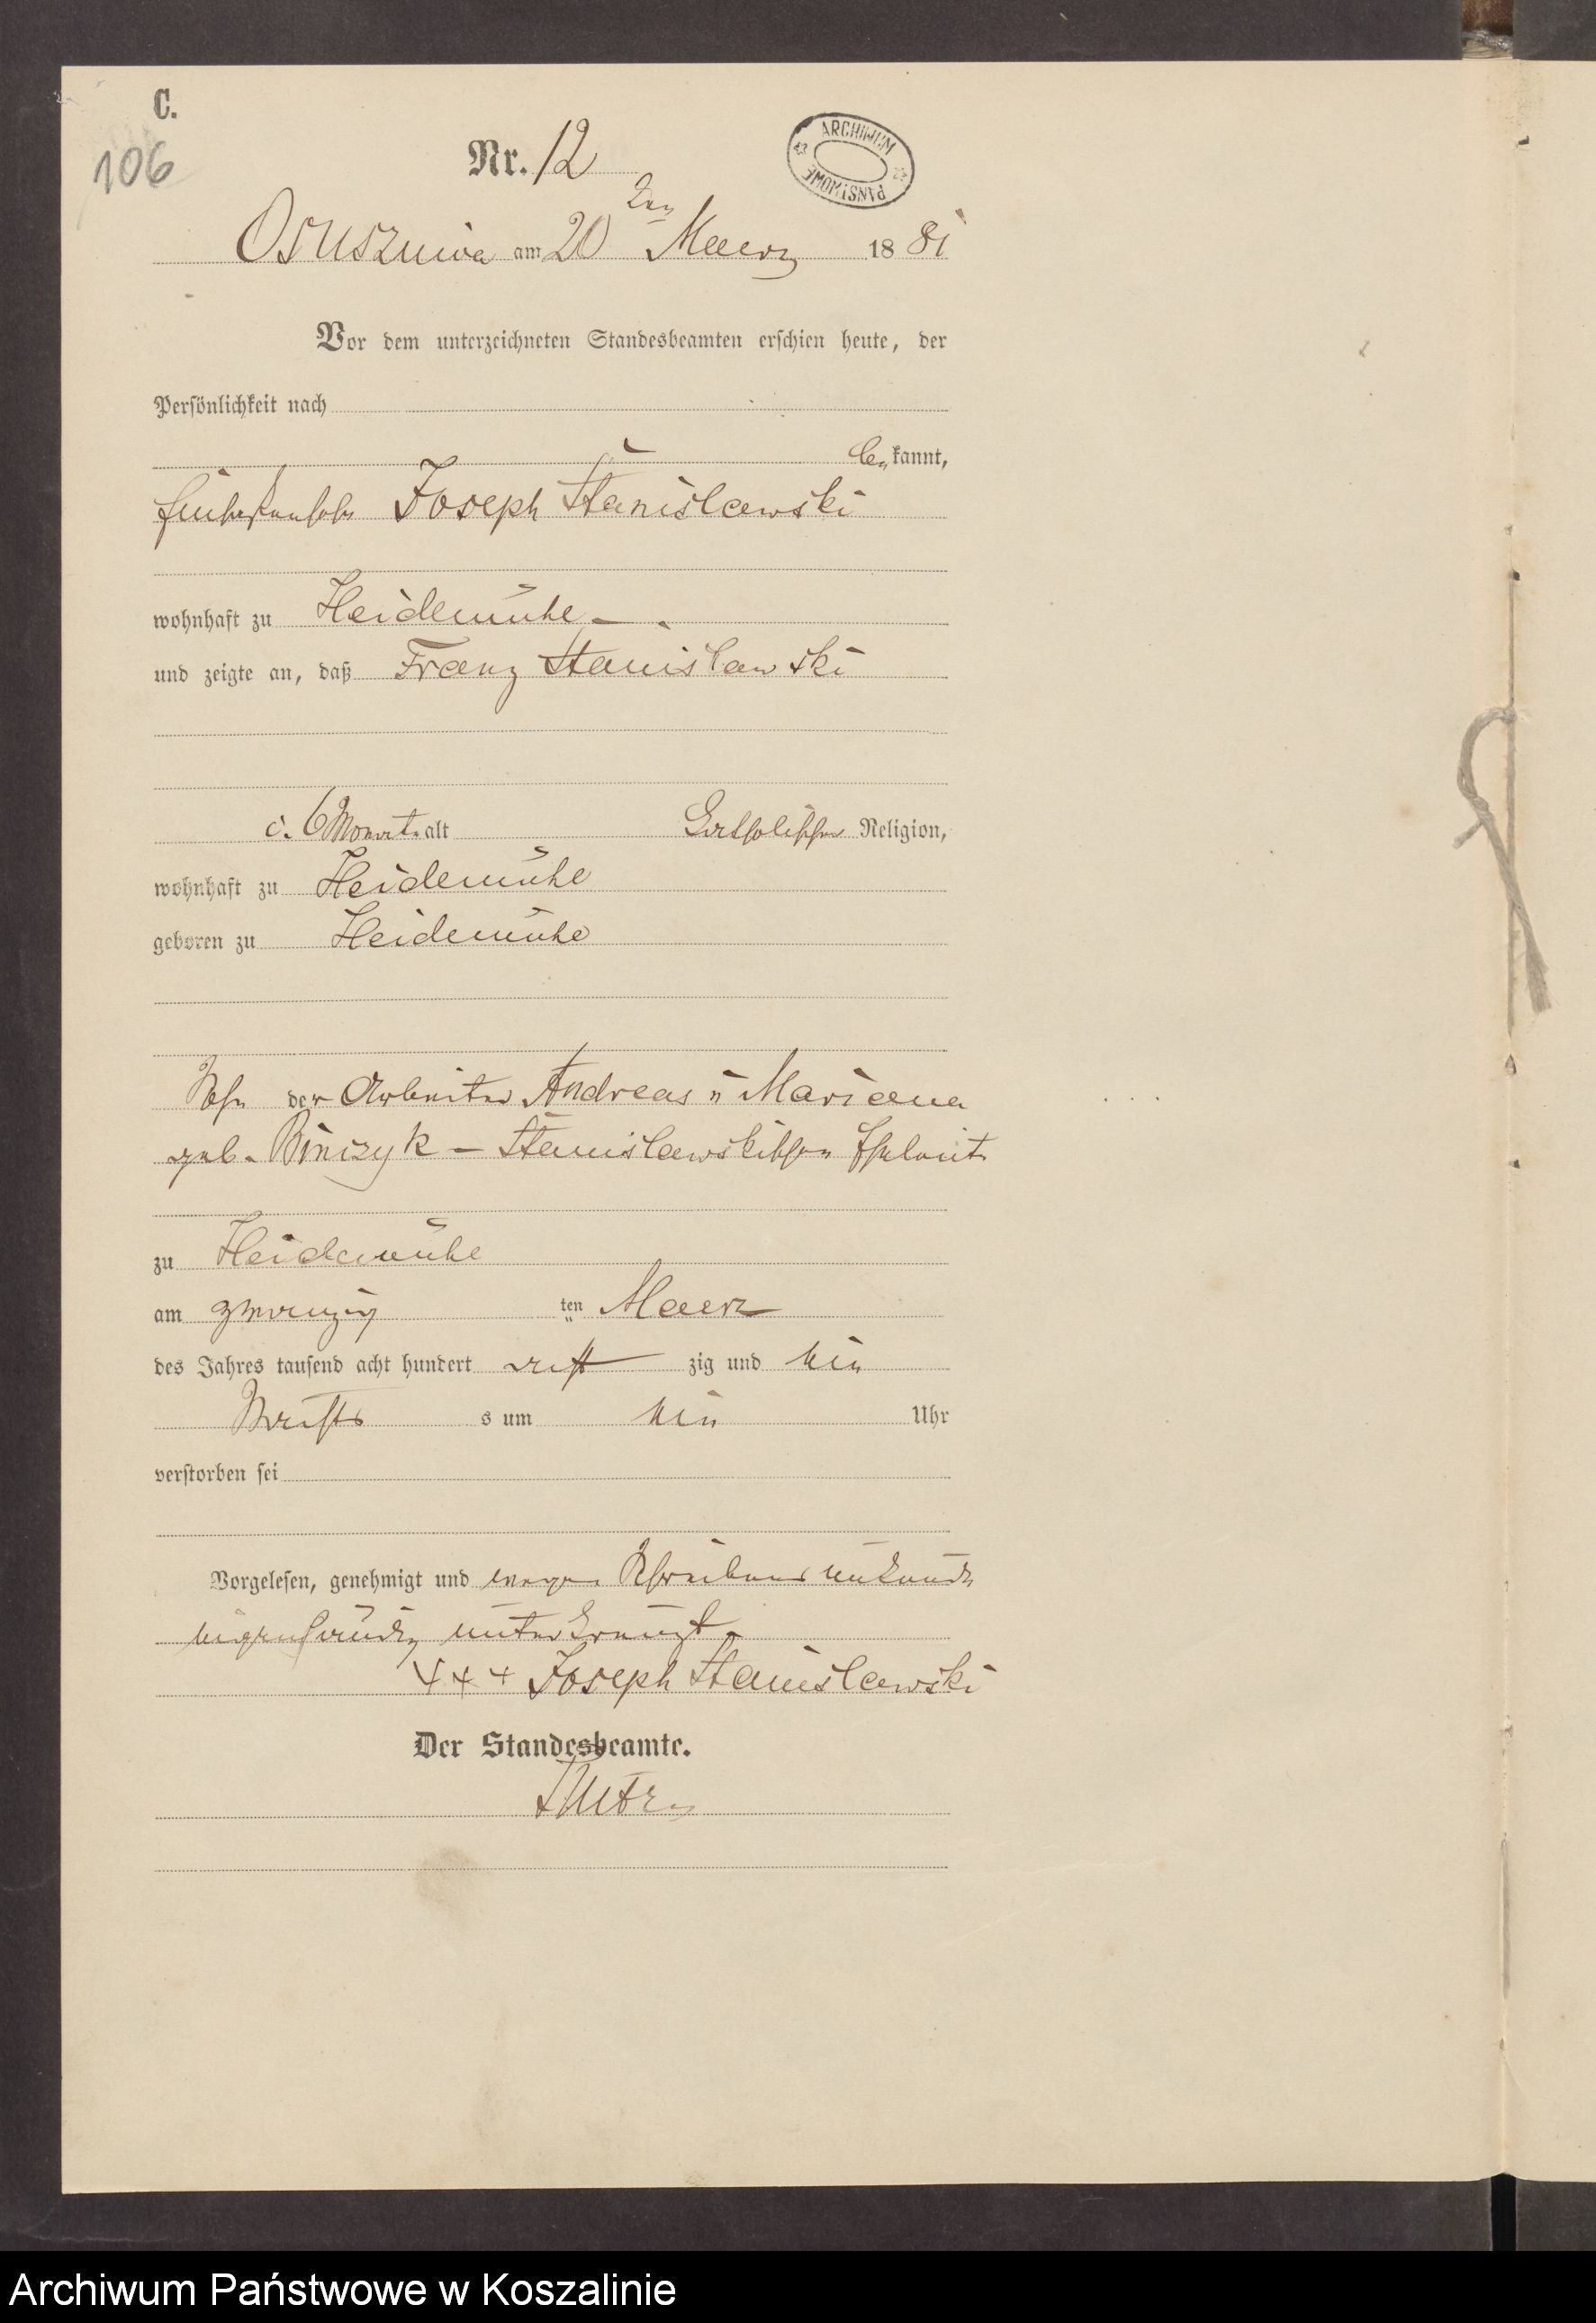 C.
106
Nr. 12
ARCHIWUM PAŃSTWOWE
Osusznica am 20 ten Maerz 1881
Vor dem unterzeichneten Standesbeamten erschien heute, der
Persönlichkeit nach
be kannt,
Joseph Stanislawski
wohnhaft zu Heidemühe
und zeigte an, daß Franz Stanislawski
c. 6 Monate alt katholischer Religion,
wohnhaft zu Heidemühe
geboren zu Heidemühe
Sohn der Arbeiter Andreas u Marianna
geb. Binczyk – Stanislawskischen Eheleute
zu Heidemühe
am zwanzig ten Maerz
des Jahres tausend acht hundert acht zig und ein
Nachts s um ein Uhr
verstorben sei
Vorgelesen, genehmigt und wegen Schreibens unkunde
eigenhändig unterkreuzt
+++ Joseph Stanislawski
Der Standesbeamte.
Archiwum Państwowe w Koszalinie